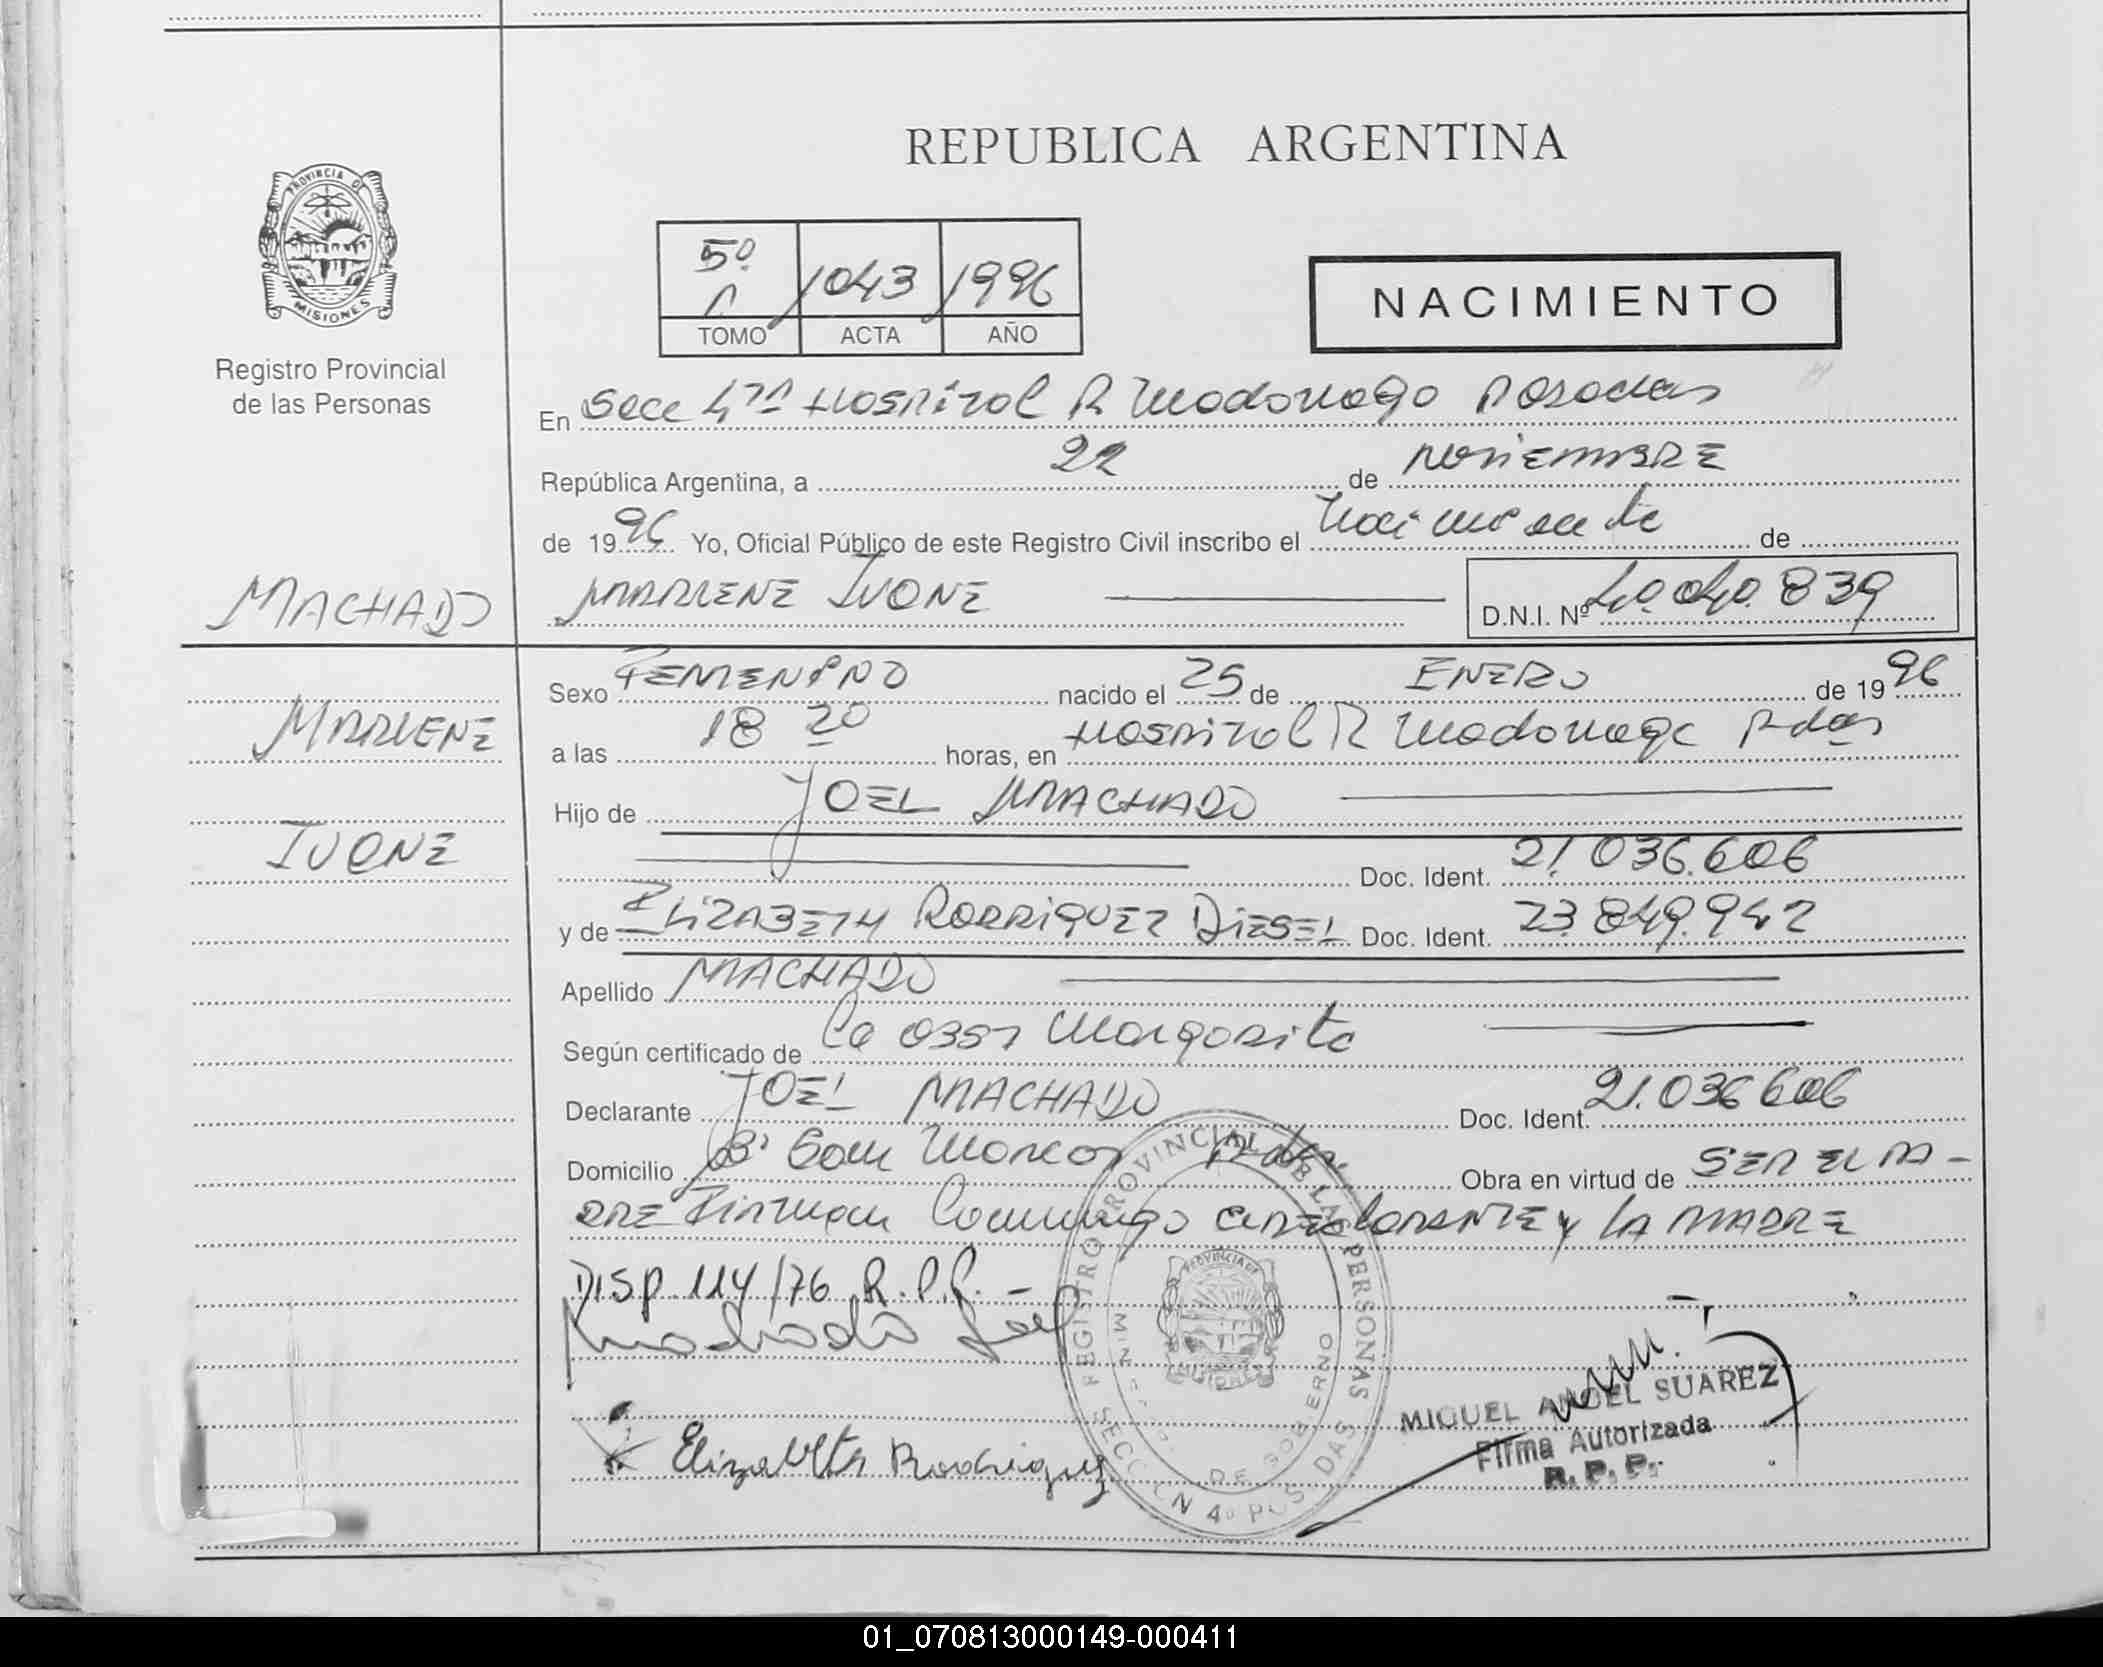 REPUBLICA ARGENTINA
PROVINCIA DE
MISIONES
Registro Provincial
de las Personas
5º 1043 1996
TOMO ACTA AÑO
NACIMIENTO
En Secc 4ta Hospital R Madariaga Posadas
República Argentina, a 22 de NOVIEMBRE
de 1996 Yo, Oficial Público de este Registro Civil inscribo el Nacimiento de
MACHADO
MARLENE IVONE D.N.I. Nº 40.040.839
Sexo FEMENINO nacido el 25 de ENERO de 1996
MARLENE
a las 18 20 horas, en Hospital R Madariaga Pdas
Hijo de JOEL MACHADO
IVONE
Doc. Ident. 21.036.606
y de ELIZABETH RODRIGUEZ DIESEL Doc. Ident. 23.849.942
Apellido MACHADO
Según certificado de La Obst Margarita
Declarante JOEL MACHADO Doc. Ident. 21.036 606
Domicilio Bº San Marcos Pdas Obra en virtud de SER EL PA-
DRE Firman Conmigo el DECLARANTE y LA MADRE
DISP. 114/76 R.P.P. -
Machado Joel
REGISTRO PROVINCIAL DE LAS PERSONAS
PROVINCIA DE
MISIONES
DE GOBIERNO
SECCION 4º POSADAS
MIGUEL ANGEL SUAREZ
Firma Autorizada
R. P. P.
Elizabeth Rodriguez
01_070813000149-000411